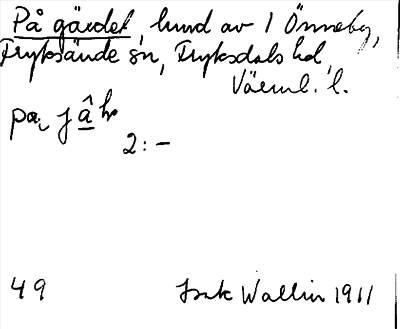 På gärdet, hmd av 1 Önneby,
Fryksände sn, Fryksdals hd,
Värml. l.
2:-
49 Isak Wallin 1911